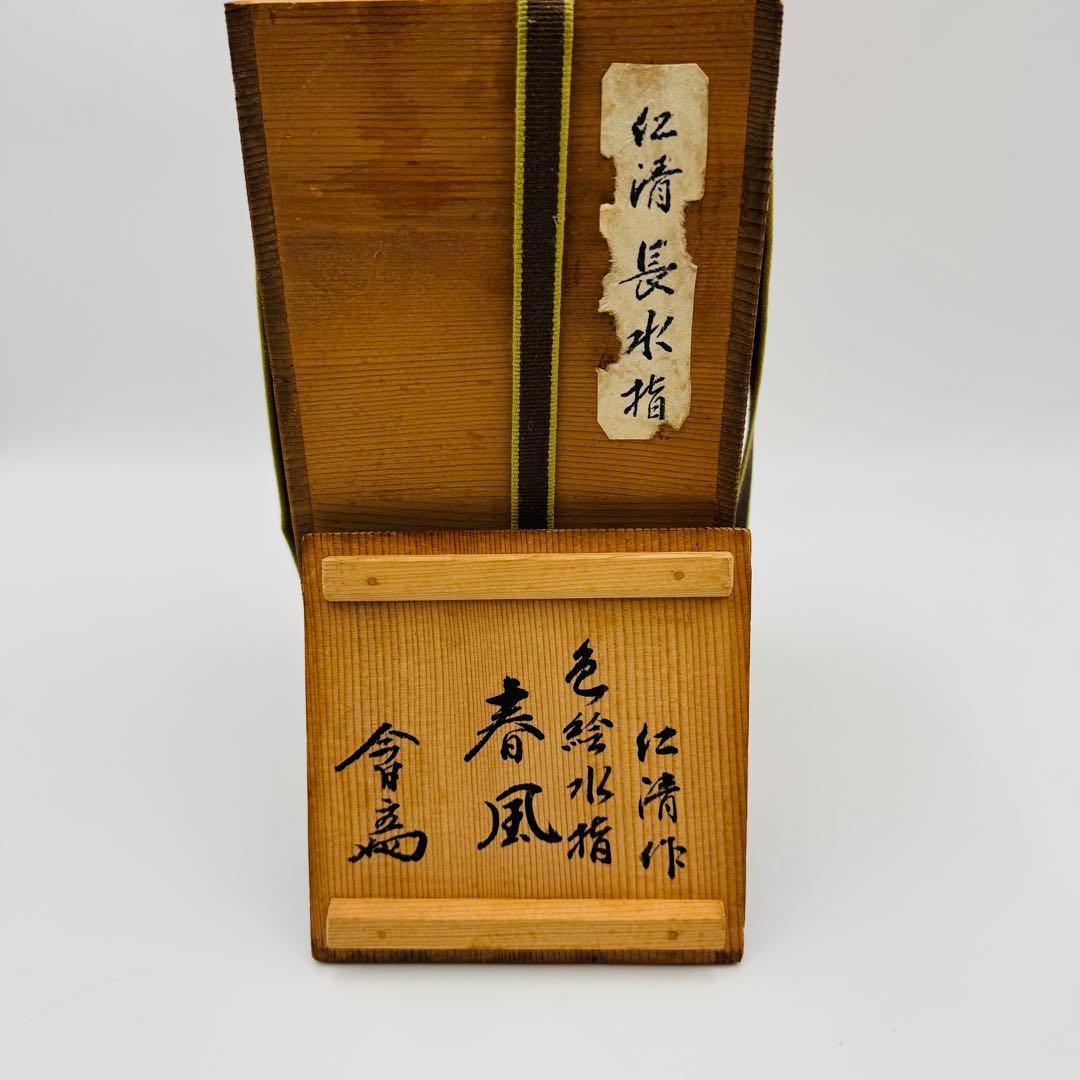 仁清 長水指
仁清作
色絵水指
春風
會斎